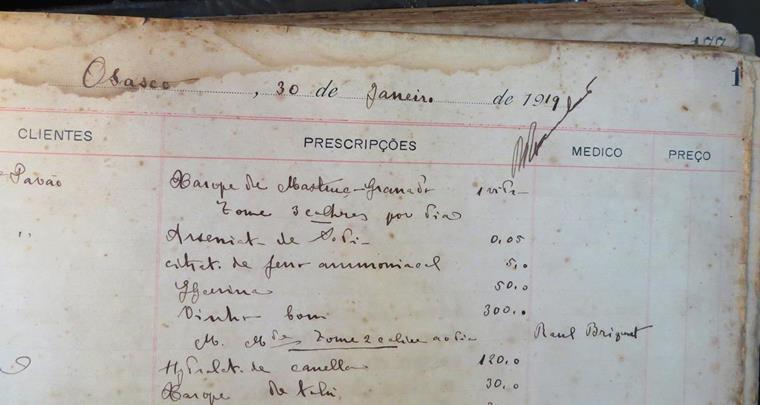 177
1
Osasco, 30 de Janeiro de 1919
CLIENTES PRESCRIPÇÕES MEDICO PREÇO
Pavão Xarope de Mastruço Granado 1 vidr
Tome 3 colheres por dia
" Arseniat de Sodi 0,05
citrat. de ferro ammoniacal 5,0
Glycerina 50,0
Vinho bom 300,0
M. Mde Tome 2 calices ao dia Raul Briquet
Hydrolat. de canella 120,0
Xarope de tolú 30,0